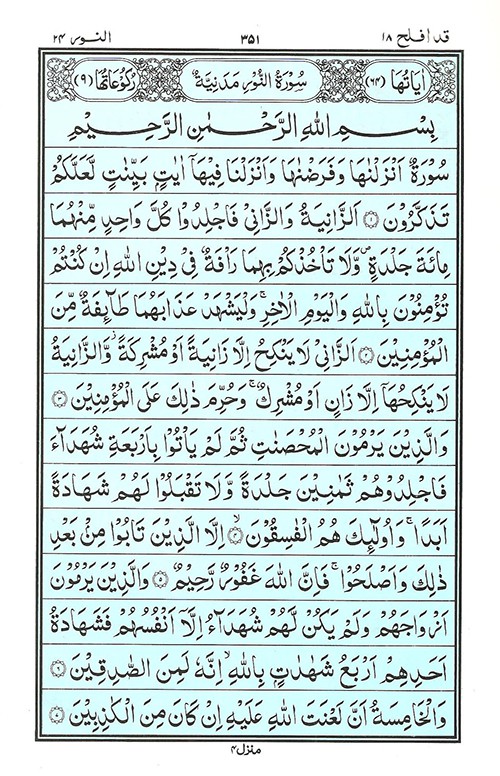 قد افلح ١٨ ٣٥١ النور ٢٤
اٰیاتُهَا (٦٤) سُوْرَةُ النُّوْرِ مَدَنِيَّةٌ رُكُوْعَاتُهَا (٩)
بِسْمِ اللهِ الرَّحْمٰنِ الرَّحِيْمِ
سُوْرَةٌ اَنْزَلْنٰهَا وَفَرَضْنٰهَا وَاَنْزَلْنَا فِيْهَآ اٰيٰتٍۭ بَيِّنٰتٍ لَّعَلَّكُمْ
تَذَكَّرُوْنَ ۝١ اَلزَّانِيَةُ وَالزَّانِيْ فَاجْلِدُوْا كُلَّ وَاحِدٍ مِّنْهُمَا
مِائَةَ جَلْدَةٍ ۪ وَّلَا تَاْخُذْكُمْ بِهِمَا رَاْفَةٌ فِيْ دِيْنِ اللهِ اِنْ كُنْتُمْ
تُؤْمِنُوْنَ بِاللهِ وَالْيَوْمِ الْاٰخِرِ ۚ وَلْيَشْهَدْ عَذَابَهُمَا طَآئِفَةٌ مِّنَ
الْمُؤْمِنِيْنَ ۝٢ اَلزَّانِيْ لَا يَنْكِحُ اِلَّا زَانِيَةً اَوْ مُشْرِكَةً ۫ وَّالزَّانِيَةُ
لَا يَنْكِحُهَآ اِلَّا زَانٍ اَوْ مُشْرِكٌ ۚ وَحُرِّمَ ذٰلِكَ عَلَى الْمُؤْمِنِيْنَ ۝٣
وَالَّذِيْنَ يَرْمُوْنَ الْمُحْصَنٰتِ ثُمَّ لَمْ يَاْتُوْا بِاَرْبَعَةِ شُهَدَآءَ
فَاجْلِدُوْهُمْ ثَمٰنِيْنَ جَلْدَةً وَّلَا تَقْبَلُوْا لَهُمْ شَهَادَةً
اَبَدًا ۚ وَاُولٰٓئِكَ هُمُ الْفٰسِقُوْنَ ۝٤ اِلَّا الَّذِيْنَ تَابُوْا مِنْۢ بَعْدِ
ذٰلِكَ وَاَصْلَحُوْا ۚ فَاِنَّ اللهَ غَفُوْرٌ رَّحِيْمٌ ۝٥ وَالَّذِيْنَ يَرْمُوْنَ
اَزْوَاجَهُمْ وَلَمْ يَكُنْ لَّهُمْ شُهَدَآءُ اِلَّآ اَنْفُسُهُمْ فَشَهَادَةُ
اَحَدِهِمْ اَرْبَعُ شَهٰدٰتٍۭ بِاللهِ ۙ اِنَّهٗ لَمِنَ الصّٰدِقِيْنَ ۝٦
وَالْخَامِسَةُ اَنَّ لَعْنَتَ اللهِ عَلَيْهِ اِنْ كَانَ مِنَ الْكٰذِبِيْنَ ۝٧
منزل ٤